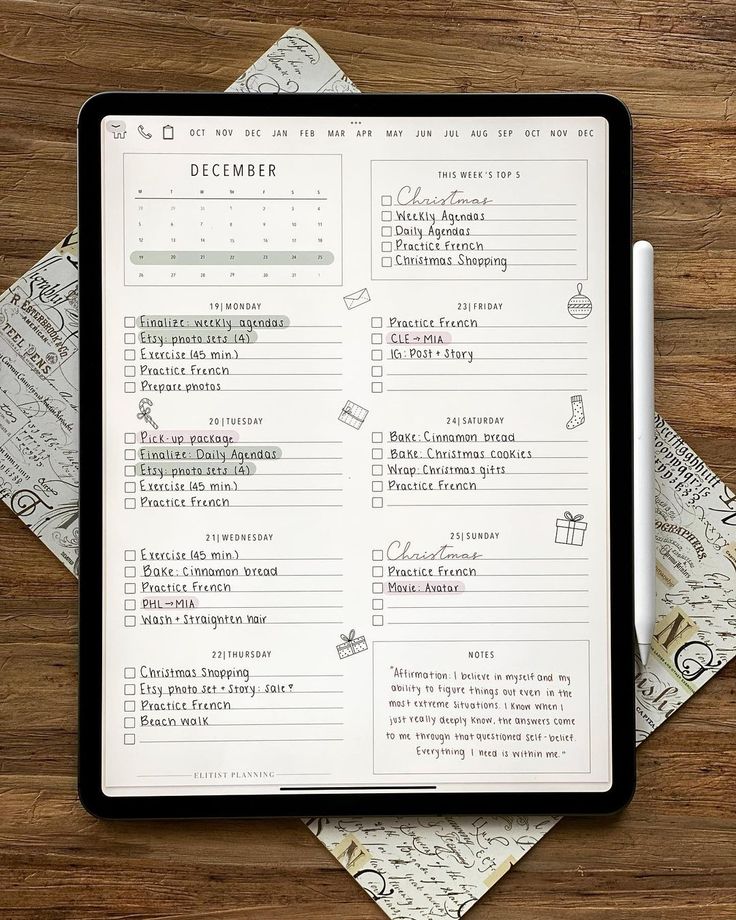 OCT NOV DEC JAN FEB MAR APR MAY JUN JUL AUG SEP OCT NOV DEC
DECEMBER
M T W TH F S S
28 29 30 1 2 3 4
5 6 7 8 9 10 11
12 13 14 15 16 17 18
19 20 21 22 23 24 25
26 27 28 29 30 31 1
THIS WEEK'S TOP 5
Christmas
Weekly Agendas
Daily Agendas
Practice French
Christmas Shopping
19|MONDAY
Finalize: weekly agendas
Etsy: photo sets (4)
Exercise (45 min.)
Practice French
Prepare photos
20|TUESDAY
Pick-up package
Finalize: Daily Agendas
Etsy: photo sets (4)
Exercise (45 min.)
Practice French
21|WEDNESDAY
Exercise (45 min.)
Bake: Cinnamon bread
Practice French
PHL→MIA
Wash + Straighten hair
22|THURSDAY
Christmas Shopping
Etsy photo set + Story: sale?
Practice French
Beach walk
ELITIST PLANNING
23|FRIDAY
Practice French
CLE→MIA
IG: Post + Story
24|SATURDAY
Bake: Cinnamon bread
Bake: Christmas cookies
Wrap: Christmas gifts
Practice French
25|SUNDAY
Christmas
Practice French
Movie: Avatar
NOTES
"Affirmation: I believe in myself and my
ability to figure things out even in the
most extreme situations. I know when I
just really deeply know, the answers come
to me through that questioned self-belief.
Everything I need is within me."
ESTERBROOK
AMERICAN
STEEL PENS